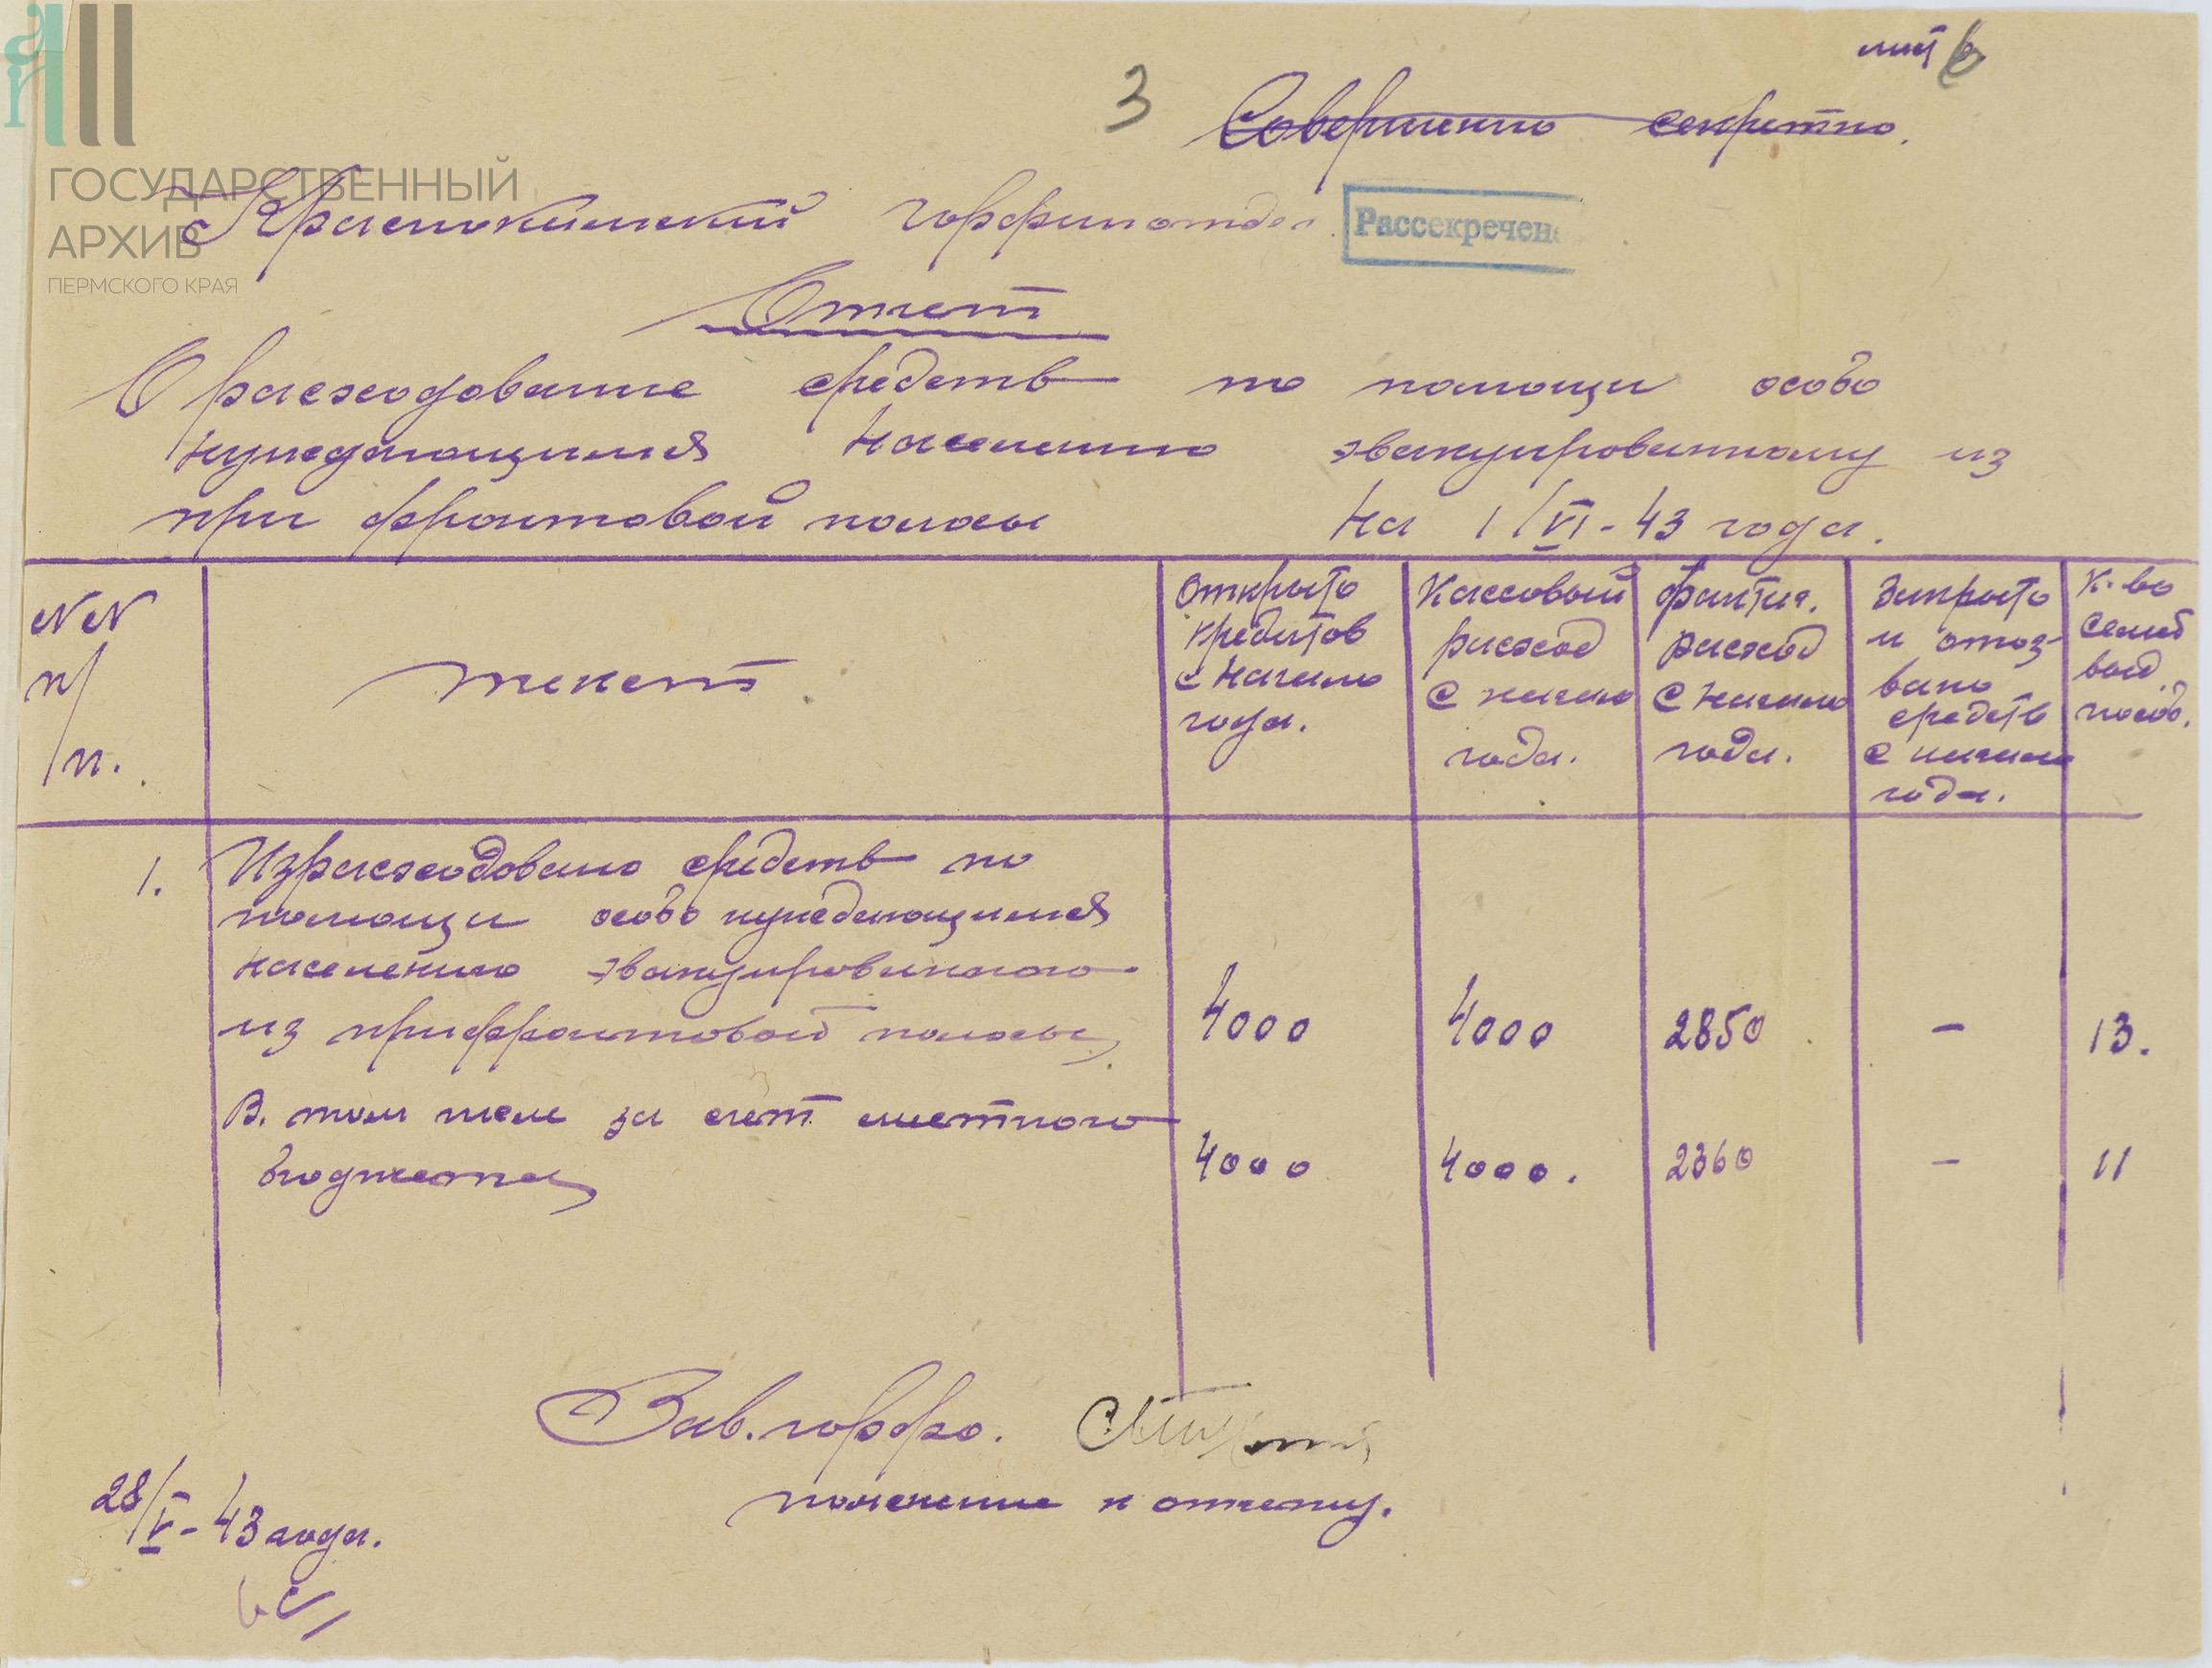 лист 6
3 Совершенно секретно.
ГОСУДАРСТВЕННЫЙ
АРХИВ
ПЕРМСКОГО КРАЯ
Краснокамский горфинотдел
Рассекречено
Отчет
О расходование средств по помощи особо
нуждающимся населению эвакуированному из
при фронтовой полосы на 1/VI-43 года.
NN
п/
п.
текст
Открыто
кредитов
с начало
года.
Кассовый
расход
с начало
года.
фактич.
расход
с начало
года.
Закрыто
и отоз-
вано
средств
с начало
года.
К-во
семей
выд.
пособ.
1. Израсходовано средств по
помощи особо нуждающимся
населению эвакуированного
из прифронтовой полосы, 4000 4000 2850 – 13.
В. том числе за счет местного
бюджета 4000 4000. 2360 – 11
Зав. горфо.
28/V-43 года.
пояснение к отчету.